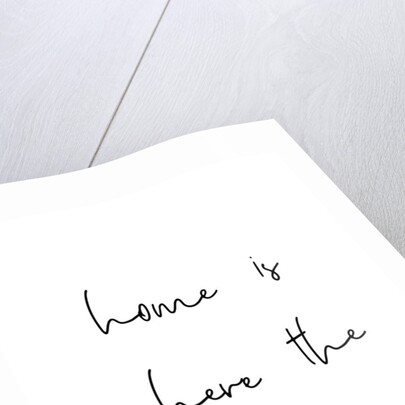 home is
here the